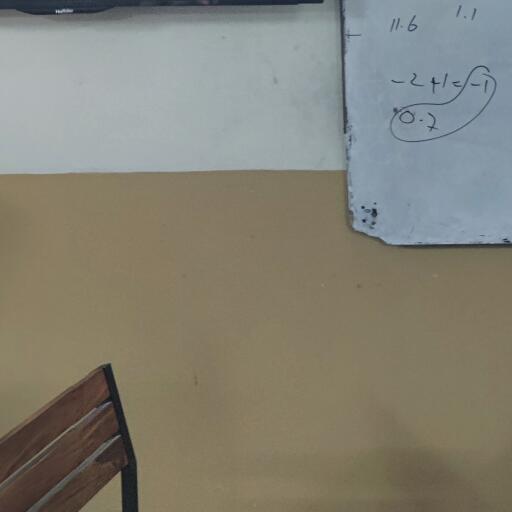 11.6 1.1
-2+1=-1
0.7